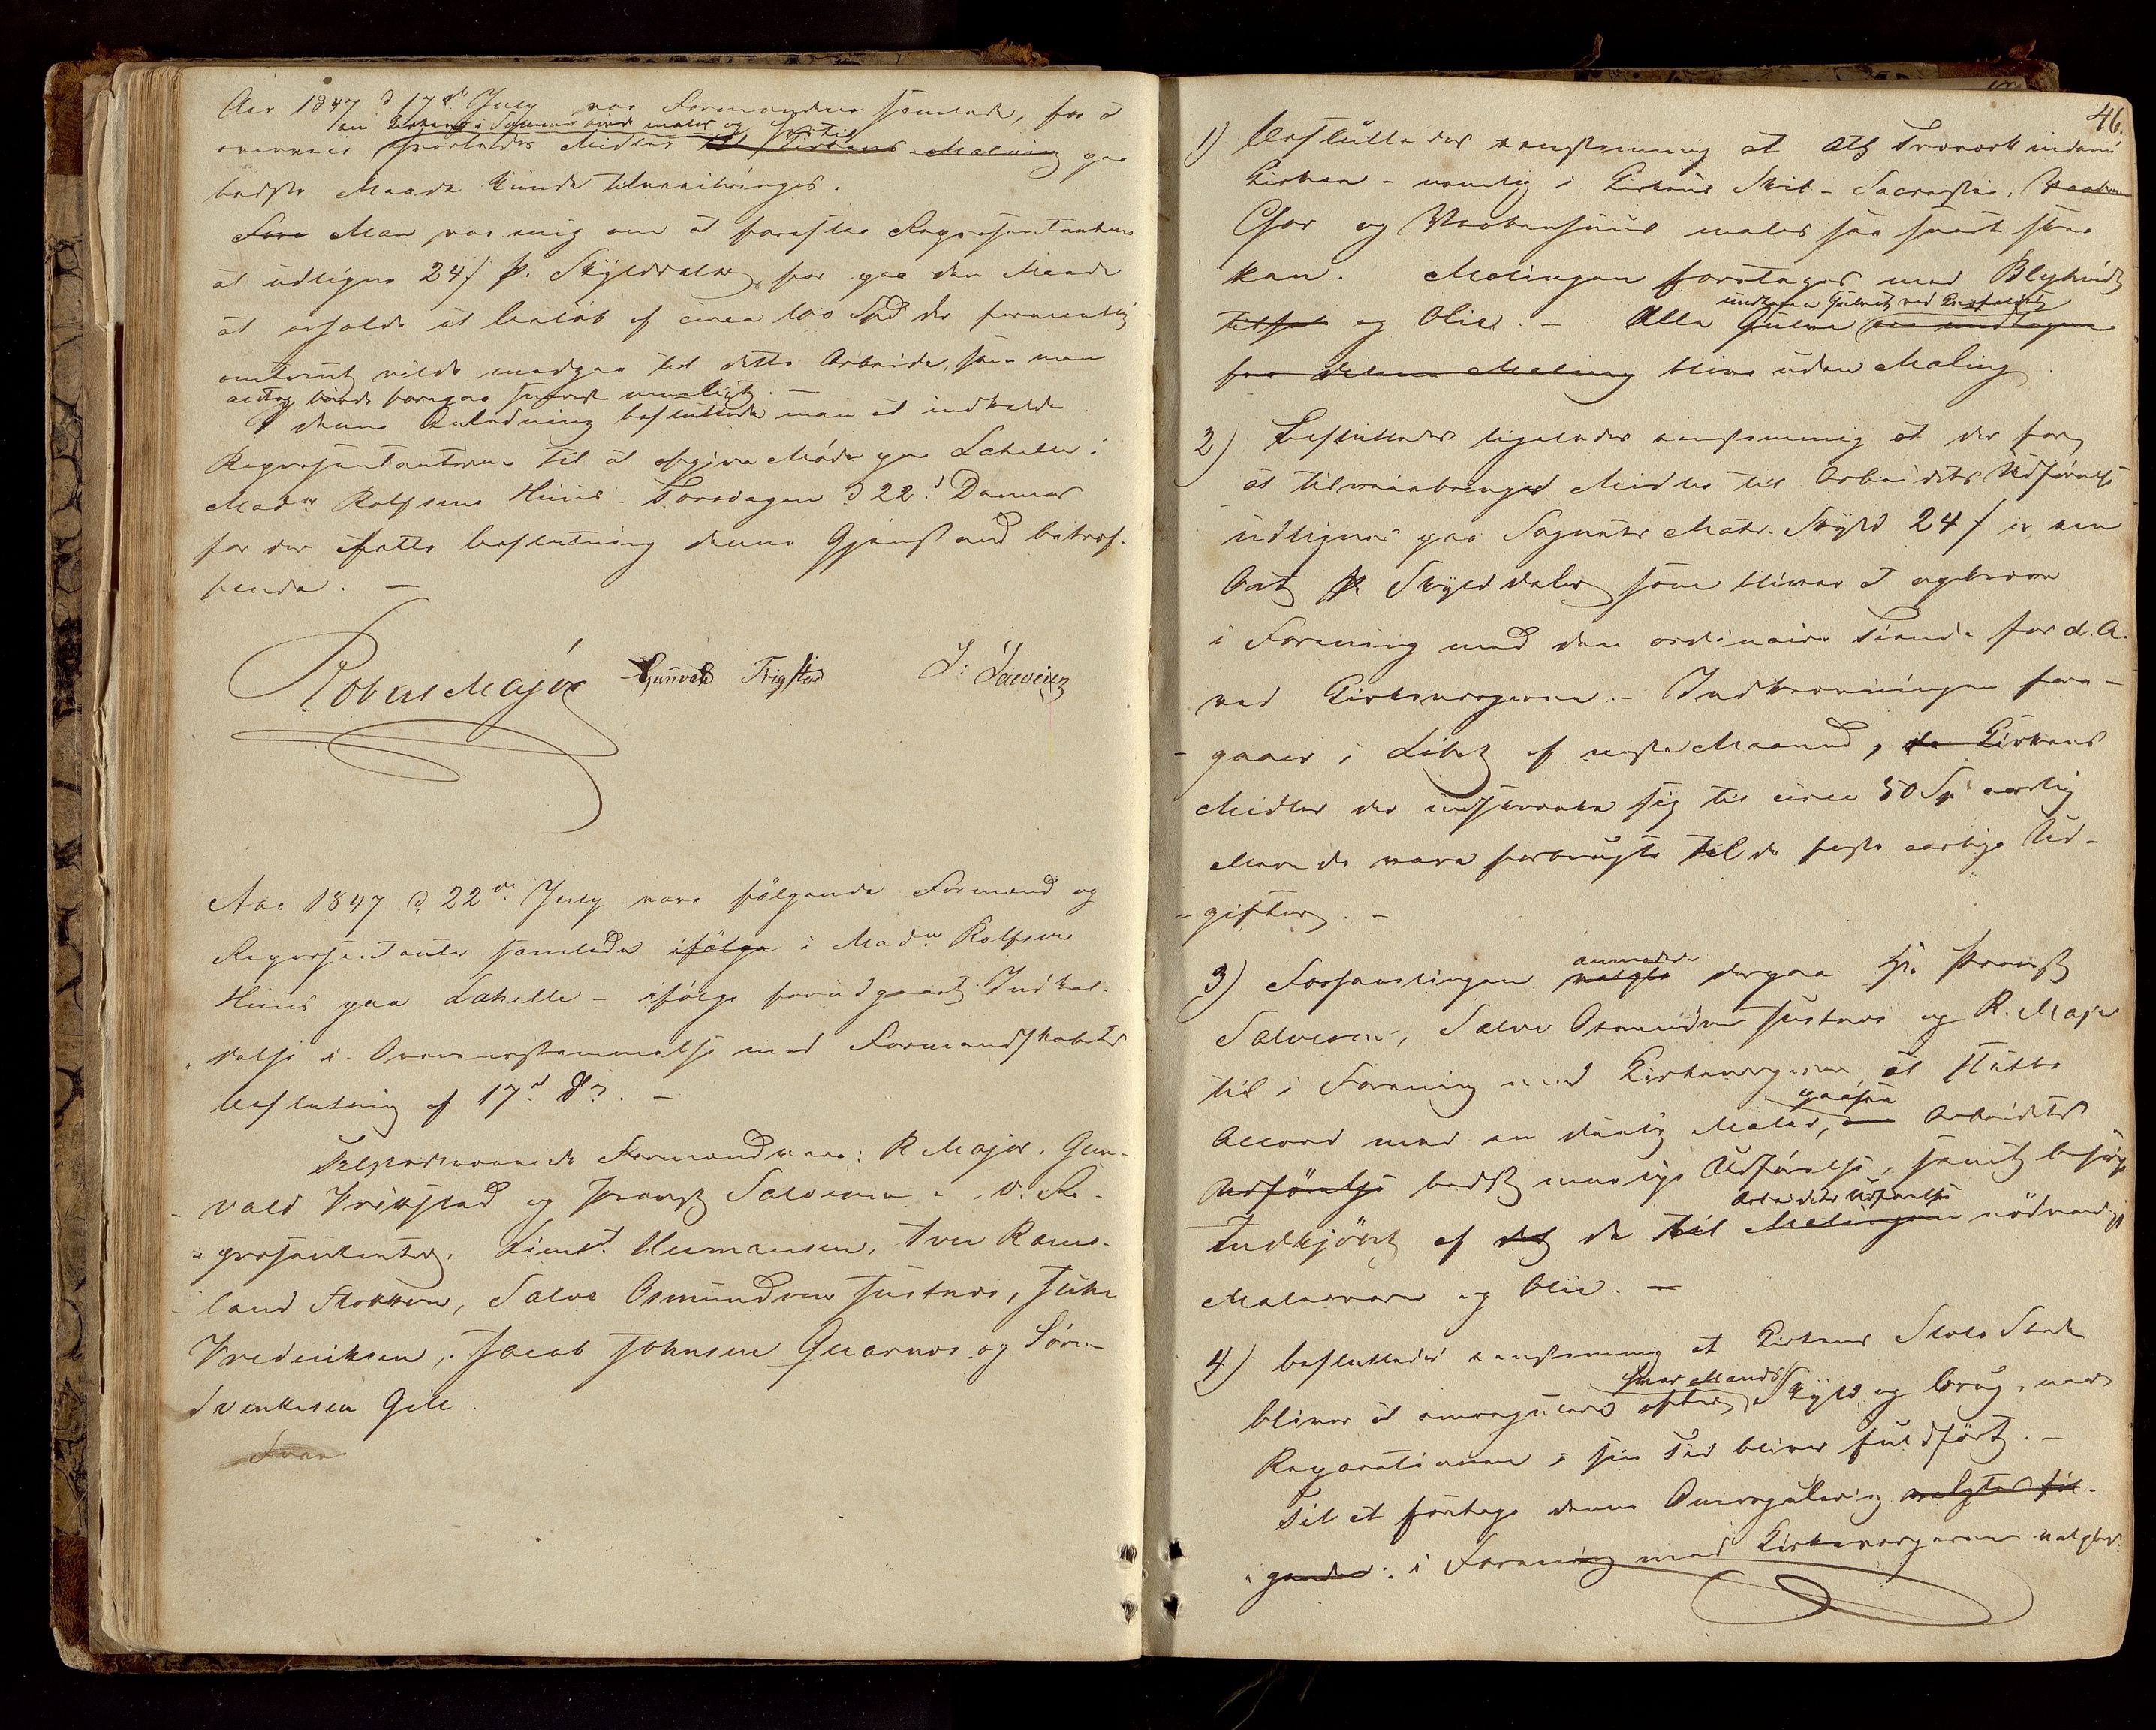 Aar 1847 d 17de July var Formændene samlede, for at
om Kirken i Sommer burde males og
overveie hvorledes Midler til Kirkens Maling paa
bedste Maade kunde tilveiebringes.
Man var enig om at foreslaa Repræsentanterne
at udligne 24 s pr. Skylddaler, for paa den Maade
at erholde et Beløb af circa 100 Spd der formentlig
omtrent vilde medgaa til dette Arbeide, som man
antog burde foregaa snarest muligt. –
I denne Anledning besluttede man at indkalde
Repræsentanterne til at afgive Møde paa Lahelle i
Madm Rolfsens Huus – Torsdagen d 22d Dennes
for der at fatte beslutning denne Gjenstand betræf-
fende. –
Robert Major Gunvald Trigstad J: Salvesen
Aar 1847 d. 22de July vare følgende Formænd og
Repræsentanter samlede ifølge i Madm Rolfsens
Huus paa Lahelle – ifølge forudgaaet Indkal-
delse i Overeensstemmelse med Formandskabets
beslutning af 17d ds. –
Tilstedeværende Formænd vare: R Major, Gun-
vald Vrikstad og Salvesen –
præsentanter. Lieut. Hermansen, Iver Rams-
land Stokken, Salve Osmundsen Justnes, Juhl
Frederiksen, Jacob Johnsen Quarnes og Sørn
Svenkesen Gill.
46.
1) Besluttedes eenstemmig at alt Træværk indeni
Kirken – nemlig i Kirkens Skib – Sacrestie,
Chor og Vaabenhuus males saa snart skee
kan. Malingen foretages med Blyhvidt
undtagen Gulvet ved
og Olie. – Alle Gulve ere undtagne
fra denne Maling blive uden Maling.
2) Besluttedes ligeledes eenstemmig at der for
at tilveiebringe Midler til Arbeidets Udførelse
udlignes paa Sognets Matr. Skyld 24 s
Ort pr Skylddaler som bliver at opkræve
i Forening med den ordinaire Tiende for d. A.
ved Kirkeværgerne. – Indkrævningen fore-
gaaer i Løbet af næste Maaned, da Kirkens
Midler der indskrænke sig til circa 50 Sp. aarlig
allerede vare forbrugte til de faste aarlige Ud-
gifter. –
anmodede
3) Forsamlingen valgte dertil Hr.
Salvesen, Salve Osmundsen Justnes og R. Major
til i Forening med Kirkeværgerne at slutte
paa
Accord med en duelig Maler, om Arbeidets
Udførelse bedst mulige Udførelse, samt besørge
Arbeidets Udførelse
Indkjøbet af det de til Malingen nødvendige
Malervarer og Olie. –
4) besluttedes eenstemmig at Kirkens Stole Stader
hver Mands
bliver at omregulere efter Skyld og brug, naar
Reparationen i sin Tid bliver fuldført. –
Til at foretage denne Omregulering valgtes føl-
gende: i Forening med Kirkeværgerne valgtes